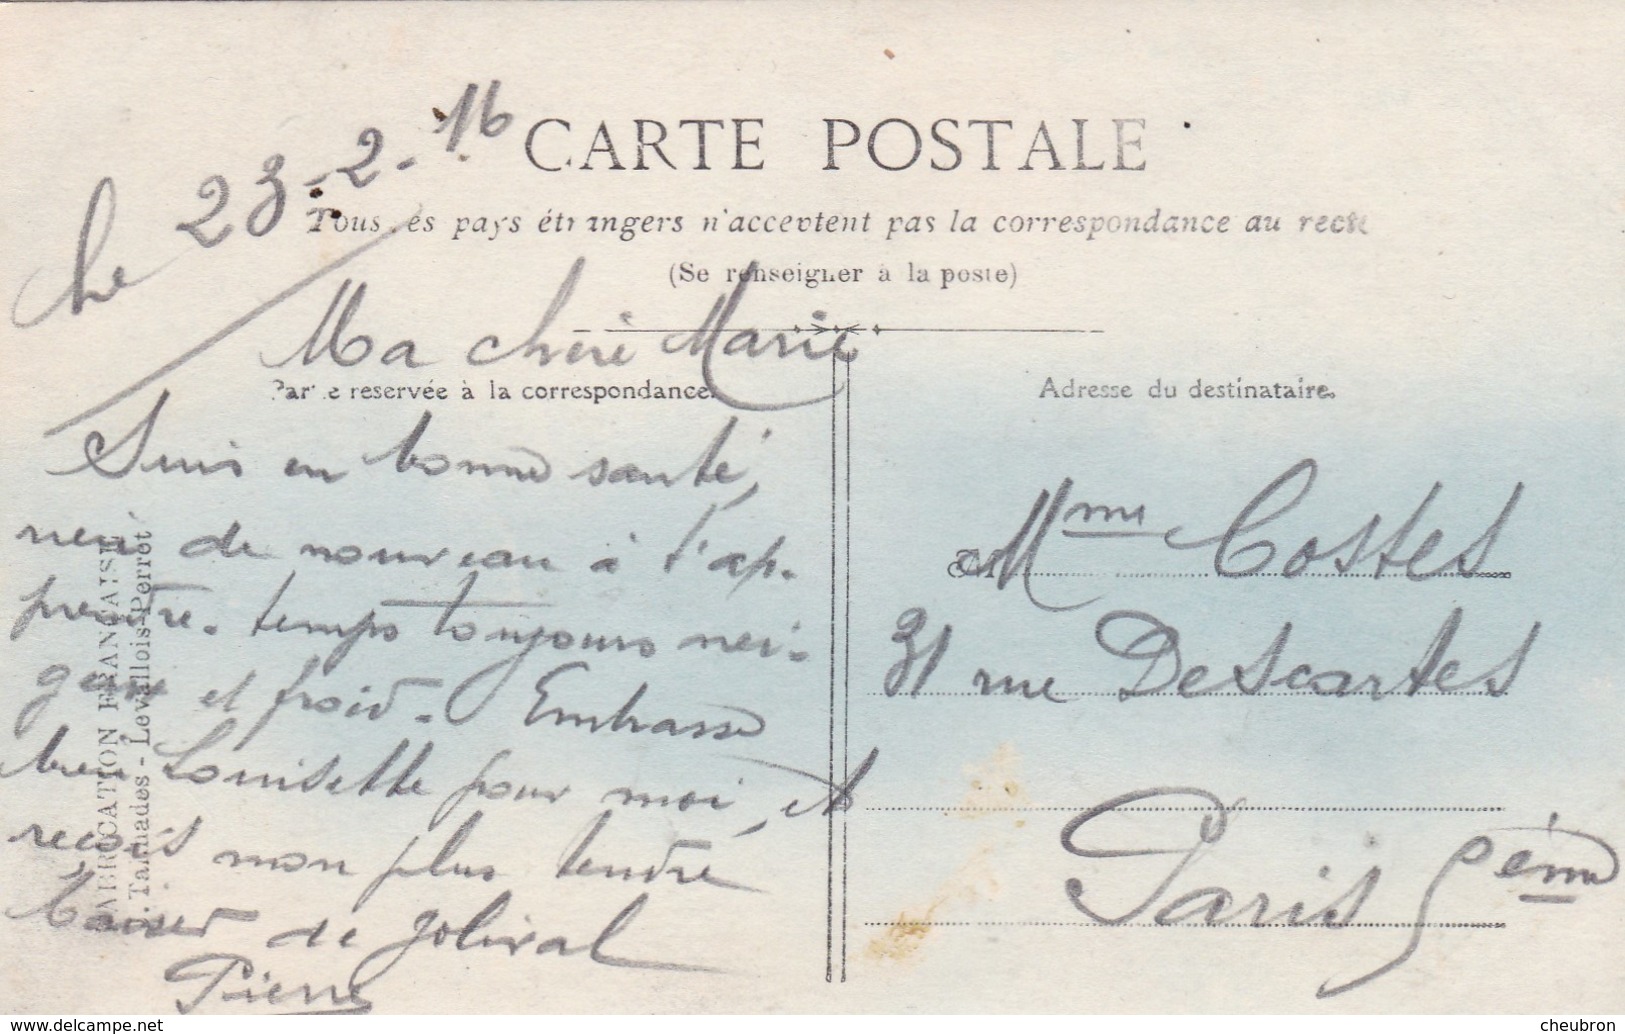 CARTE POSTALE
Le 23-2-16
Tous les pays étrangers n'acceptent pas la correspondance au recto
(Se renseigner à la poste)
Ma chère Marie
Partie reservée à la correspondance.
Adresse du destinataire.
Suis en bonne santé,
rien de nouveau à t'ap-
prendre. temps toujours nei-
geux et froid. Embrasse
bien Louisette pour moi, et
reçois mon plus tendre
baiser de Jolival
Pierre
Mme Costes
31 rue Descartes
Paris 5ème
FABRICATION FRANÇAISE
Levallois-Perret
www.delcampe.net
cheubron